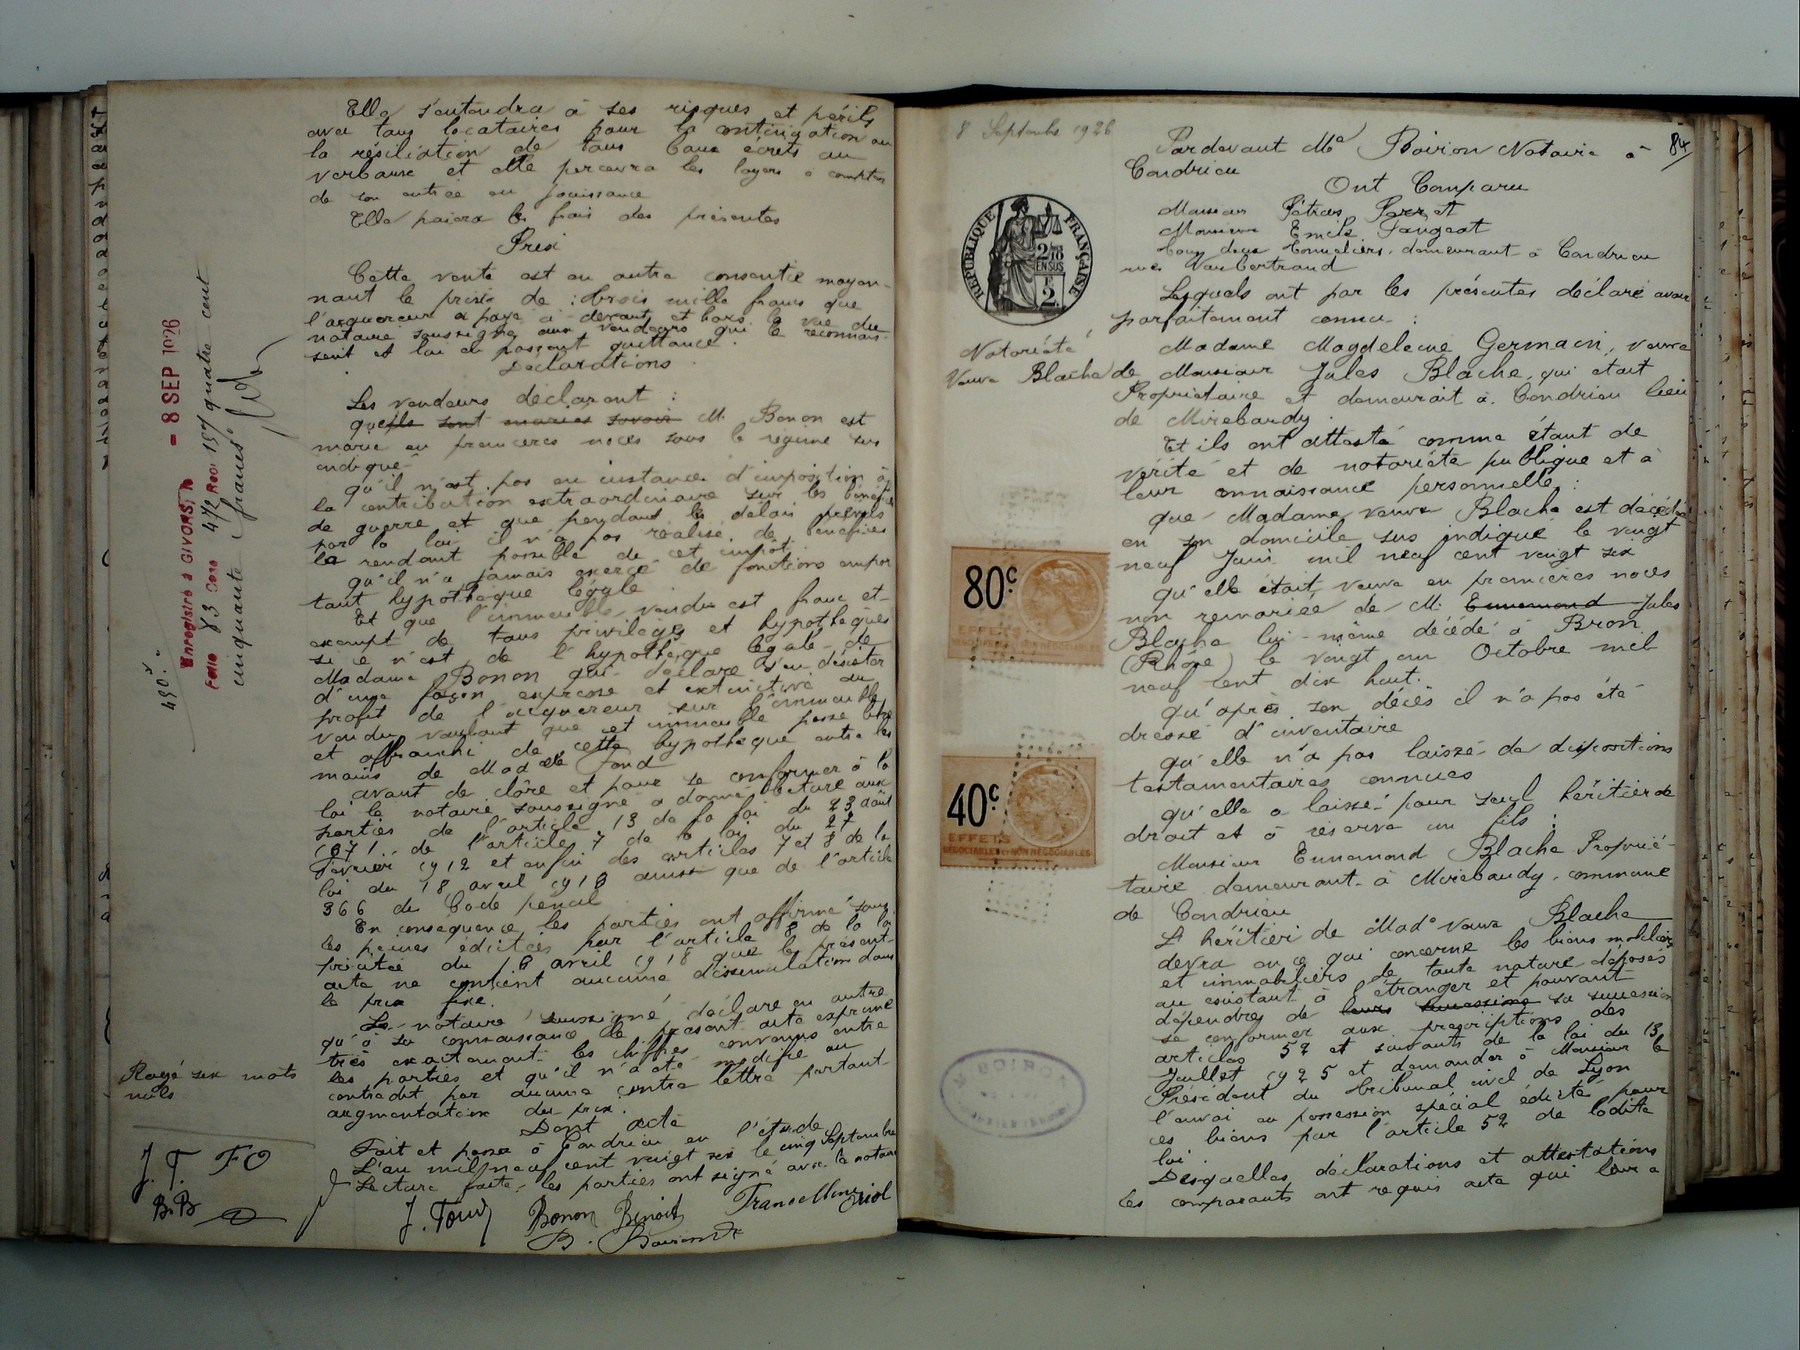 Elle s'entendra à ses risques et périls
avec tous locataires pour la continuation ou
la résiliation de tous baux écrits ou
verbaux et elle percevra les loyers à compter
de son entrée en jouissance
Elle paiera les frais des présentes
Prix
Cette vente est en outre consentie moyen-
nant le prix de : trois mille francs que
l'acquéreur a payé ci-devant et hors la vue du
notaire soussigné aux vendeurs qui le reconnais-
sent et lui en passent quittance.
Déclarations
Les vendeurs déclarent :
qu'ils sont mariés savoir M. Bonon est
marié en premières noces sous le régime sus
indiqué-
qu'il n'est pas en instance d'imposition à
la contribution extraordinaire sur les bénéfices
de guerre et que pendant le délai prévu
par la loi il n'a pas réalisé de bénéfices
le rendant passible de cet impôt
qu'il n'a jamais exercé de fonctions empor
tant hypothèque légale
Et que l'immeuble vendu est franc et
exempt de tous privilèges et hypothèques
si ce n'est de l'hypothèque légale de
Madame Bonon qui déclare s'en désister
d'une façon expresse et extinctive au
profit de l'acquéreur sur l'immeuble
vendu voulant que cet immeuble passe libre
et affranchi de cette hypothèque entre les
mains de Fond
avant de clore et pour se conformer à la
loi le notaire soussigné a donné lecture aux
parties de l'article 13 de la loi du 23 août
1871 de l'article 7 de la loi du 27
Février 1912 et enfin des articles 7 et 8 de la
loi du 18 avril 1918 ainsi que de l'article
366 du Code pénal
En conséquence les parties ont affirmé sous
les peines édictées par l'article 8 de la loi
précitée du 18 avril 1918 que le présent
acte ne contient aucune dissimulation dans
le prix fixé.
Le notaire soussigné déclare en outre
qu'à sa connaissance le présent acte exprime
très exactement les chiffres convenus entre
les parties et qu'il n'a été modifié ou
contredit par aucune contre lettre portant
augmentation du prix.
Dont acte
Fait et passé à Condrieu en l'étude
L'an mil neuf cent vingt six le cinq Septembre
Lecture faite, les parties ont signé avec le notaire
J. Fond Bonon Benoit
B. Boiron
Rayé six mots
nuls
J. F. FO
B.B
490.
Enregistré à GIVORS, le - 8 SEP 1926
Folio 83 Case 472 Reçu quatre cent
cinquante francs
8 Septembre 1926
84
Pardevant Me Boiron Notaire à
Condrieu
Ont Comparu
Monsieur Pétrus et
Monsieur Emile
tous deux tonneliers, demeurant à Condrieu
rue Vaubertrand
Lesquels ont par les présentes déclaré avoir
parfaitement connu :
RÉPUBLIQUE FRANÇAISE
2/10
EN SUS
Notoriété
Veuve Blache
Madame Magdeleine Germain, veuve
de Monsieur Jules Blache, qui était
Propriétaire et demeurait à Condrieu lieu
de Mirebaudy
Et ils ont attesté comme étant de
vérité et de notoriété publique et à
leur connaissance personnelle :
que Madame veuve Blache est décédée
en son domicile sus indiqué le vingt
neuf Juin mil neuf cent vingt six
qu'elle était veuve en premières noces
non remariée de M. Ennemond Jules
Blache lui-même décédé à Bron
(Rhône) le vingt un Octobre mil
neuf cent dix huit.
qu'après son décès il n'a pas été
dressé d'inventaire
qu'elle n'a pas laissé de dispositions
testamentaires connues
qu'elle a laissé pour seul héritier de
droit et à réserve un fils :
Monsieur Ennemond Blache Proprié-
taire demeurant à Mirebaudy, commune
de Condrieu
L'héritier de Made Veuve Blache
devra en ce qui concerne les biens mobiliers
et immobiliers de toute nature déposés
ou existant à l'étranger et pouvant
dépendre de leurs successions sa succession
se conformer aux prescriptions des
articles 52 et suivants de la loi du 13
Juillet 1925 et demander à Monsieur le
Président du Tribunal civil de Lyon
l'envoi en possession spécial édicté pour
ces biens par l'article 52 de ladite
loi.
Desquelles déclarations et attestations
les comparants ont requis acte qui leur a
80c
EFFETS
40c
EFFETS
NÉGOCIABLES ET NON NÉGOCIABLES
BOIRON